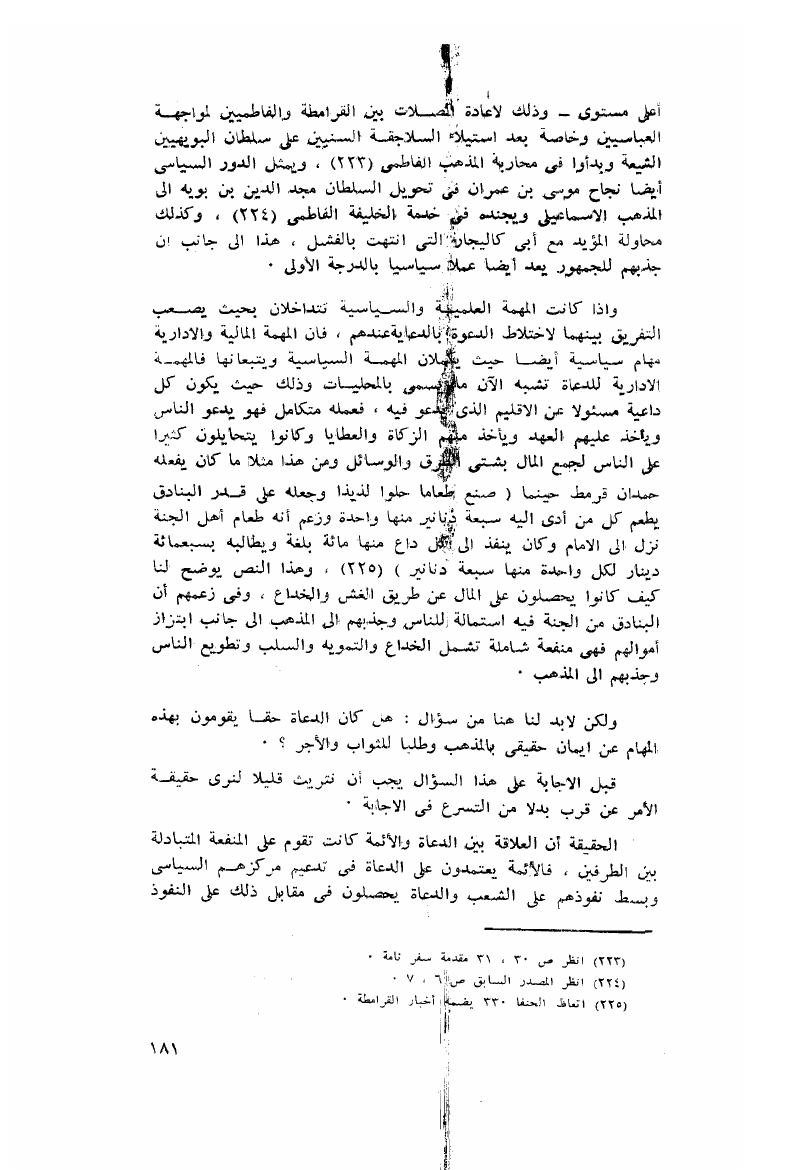 أعلى مستوى – وذلك لاعادة الصلات بين القرامطة والفاطميين لمواجهة
العباسيين وخاصة بعد استيلاء السلاجقة السنيين على سلطان البويهيين
الشيعة وبدأوا فى محاربة المذهب الفاطمى (٢٢٣) ، ويمثل الدور السياسى
أيضا نجاح موسى بن عمران فى تحويل السلطان مجد الدين بن بويه الى
المذهب الاسماعيلى ويجنده فى خدمة الخليفة الفاطمى (٢٢٤) ، وكذلك
محاولة المؤيد مع أبى كاليجار التى انتهت بالفشل ، هذا الى جانب ان
جذبهم للجمهور يعد أيضا عملا سياسيا بالدرجة الأولى ٠
واذا كانت المهمة العلمية والسياسية تتداخلان بحيث يصعب
التفريق بينهما لاختلاط الدعوة بالدعاية عندهم ، فان المهمة المالية والادارية
مهام سياسية أيضا حيث يكملان المهمة السياسية ويتبعانها فالمهمة
الادارية للدعاة تشبه الآن ما يسمى بالمحليات وذلك حيث يكون كل
داعية مسئولا عن الاقليم الذى يدعو فيه ، فعمله متكامل فهو يدعو الناس
ويأخذ عليهم العهد ويأخذ منهم الزكاة والعطايا وكانوا يتحايلون كثيرا
على الناس لجمع المال بشتى الطرق والوسائل ومن هذا مثلا ما كان يفعله
حمدان قرمط حينما ( صنع طعاما حلوا لذيذا وجعله على قدر البنادق
يطعم كل من أدى اليه سبعة دنانير منها واحدة وزعم أنه طعام أهل الجنة
نزل الى الامام وكان ينفذ الى كل داع منها مائة بلغة ويطالبه بسبعمائة
دينار لكل واحدة منها سبعة دنانير ) (٢٢٥) ، وهذا النص يوضح لنا
كيف كانوا يحصلون على المال عن طريق الغش والخداع ، وفى زعمهم أن
البنادق من الجنة فيه استمالة للناس وجذبهم الى المذهب الى جانب ابتزاز
أموالهم فهى منفعة شاملة تشمل الخداع والتمويه والسلب وتطويع الناس
وجذبهم الى المذهب ٠
ولكن لابد لنا هنا من سؤال : هل كان الدعاة حقا يقومون بهذه
المهام عن ايمان حقيقى بالمذهب وطلبا للثواب والأجر ؟ ٠
قبل الاجابة على هذا السؤال يجب أن نتريث قليلا لنرى حقيقة
الأمر عن قرب بدلا من التسرع فى الاجابة ٠
الحقيقة أن العلاقة بين الدعاة والأئمة كانت تقوم على المنفعة المتبادلة
بين الطرفين ، فالأئمة يعتمدون على الدعاة فى تدعيم مركزهم السياسى
وبسط نفوذهم على الشعب والدعاة يحصلون فى مقابل ذلك على النفوذ
(٢٢٣) انظر ص ٣٠ ، ٣١ مقدمة سفر نامة ٠
(٢٢٤) انظر المصدر السابق ص ٦ ، ٧ ٠
(٢٢٥) اتعاظ الحنفا ٣٣٠ يضمه أخبار القرامطة ٠
١٨١